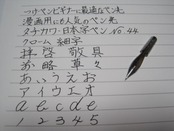 つけペンビギナーに最適なペン先
漫画用にも人気のペン先
タチカワ・日本字ペン No.44
クローム 細字
拝 啓 敬 具
前 略 草 々
あ い う え お
ア イ ウ エ オ
a b c d e
1 2 3 4 5